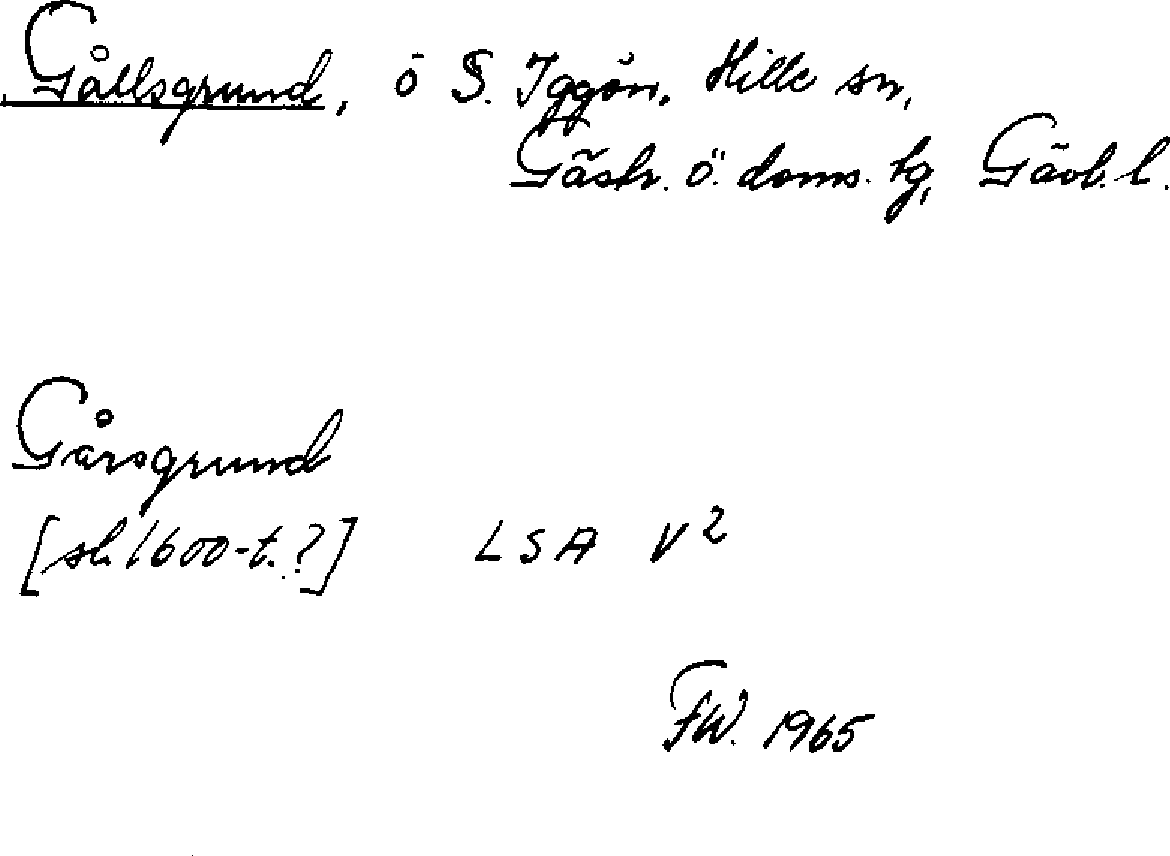 Gållsgrund, ö S. Iggön, Hille sn,
Gästr. ö. doms. tg, Gävb. l.
Gårsgrund
[sl. 1600-t.?] LSA V²
FW. 1965